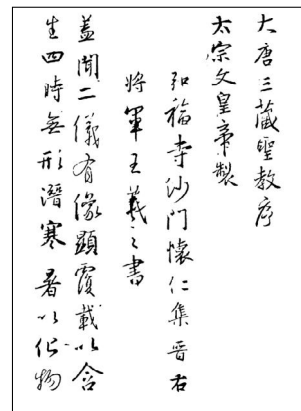 大唐三藏聖教序
太宗文皇帝製
弘福寺沙門懷仁集晉右
將軍王羲之書
蓋聞二儀有像顯覆載以含
生四時無形潛寒暑以化物